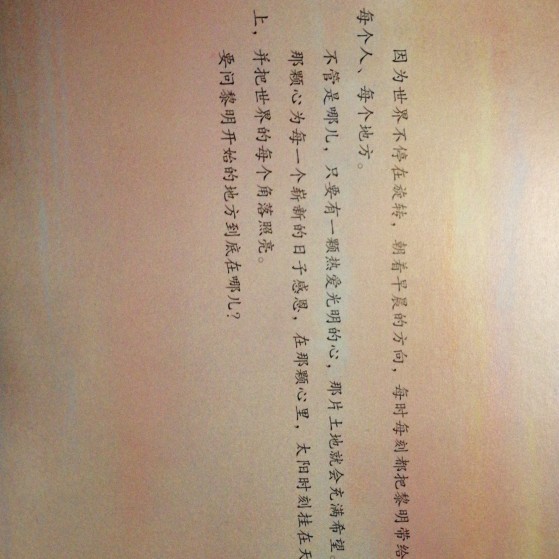 因为世界不停在旋转，朝着早晨的方向，每时每刻都把黎明带给
每个人、每个地方。
不管是哪儿，只要有一颗热爱光明的心，那片土地就会充满希望
那颗心为每一个崭新的日子感恩，在那颗心里，太阳时刻挂在天
上，并把世界的每个角落照亮。
要问黎明开始的地方到底在哪儿？